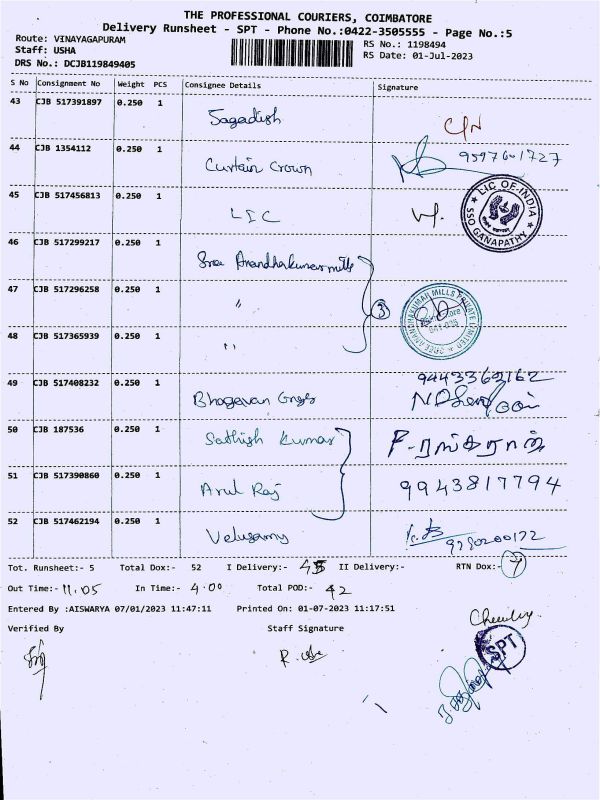 THE PROFESSIONAL COURIERS, COIMBATORE
Delivery Runsheet - SPT - Phone No.:0422-3505555 - Page No.:5
Route: VINAYAGAPURAM
RS No.: 1198494
Staff: USHA
RS Date: 01-Jul-2023
DRS No.: DCJB119849405
S No Consignment No Weight PCS Consignee Details Signature
43 CJB 517391897 0.250 1 Jagadish
44 CJB 1354112 0.250 1 Curtain Crown 9597601727
45 CJB 517456813 0.250 1 LIC LIC OF INDIA SSO GANAPATHY
46 CJB 517299217 0.250 1 Sree Anandhakumar mills
47 CJB 517296258 0.250 1 〃 3 SREE ANANDHAKUMAR MILLS PRIVATE LIMITED
48 CJB 517365939 0.250 1 〃
49 CJB 517408232 0.250 1 Bhagavan Engs 9443363162
50 CJB 187536 0.250 1 Sathish Kumar
51 CJB 517390860 0.250 1 Arul Raj 9943817794
52 CJB 517462194 0.250 1 Velusamy
Tot. Runsheet:- 5 Total Dox:- 52 I Delivery:- 45 II Delivery:- RTN Dox:- 7
Out Time:- 11.05 In Time:- 4.00 Total POD:- 42
Entered By :AISWARYA 07/01/2023 11:47:11 Printed On: 01-07-2023 11:17:51
Verified By Staff Signature
SPT